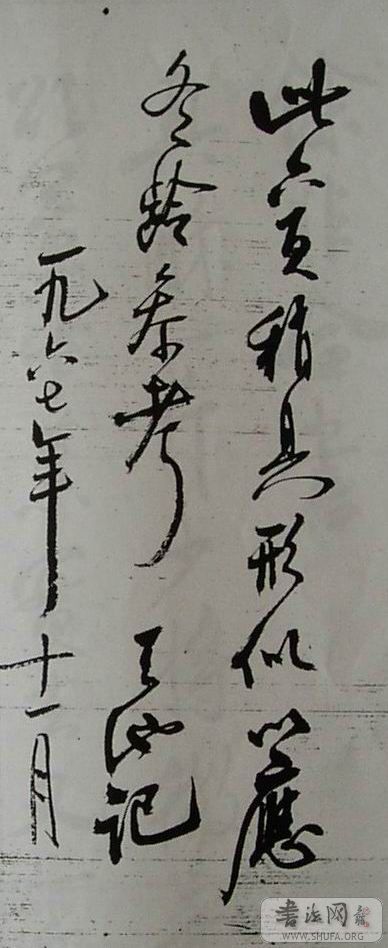 此六页稍具形似以應
冬龄参考 天池记
一九六七年十一月
書法网
WWW.SHUFA.ORG